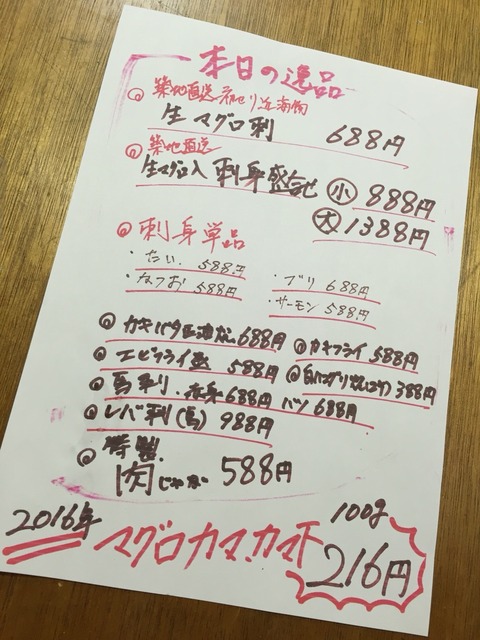 本日の逸品
築地直送 初セリ 近海物
生マグロ刺 688円
築地直送
生マグロ入 刺身盛合せ 小 888円
大 1388円
刺身単品
・たい 588円 ・ブリ 688円
・かつお 588円 ・サーモン 588円
カキバター 688円 カキフライ 588円
エビフライ 588円 388円
馬刺り 赤身 688円 バラ 688円
レバ刺(馬) 988円
特製
肉じゃが 588円
2016年 マグロカマ.カマ下 100g
216円